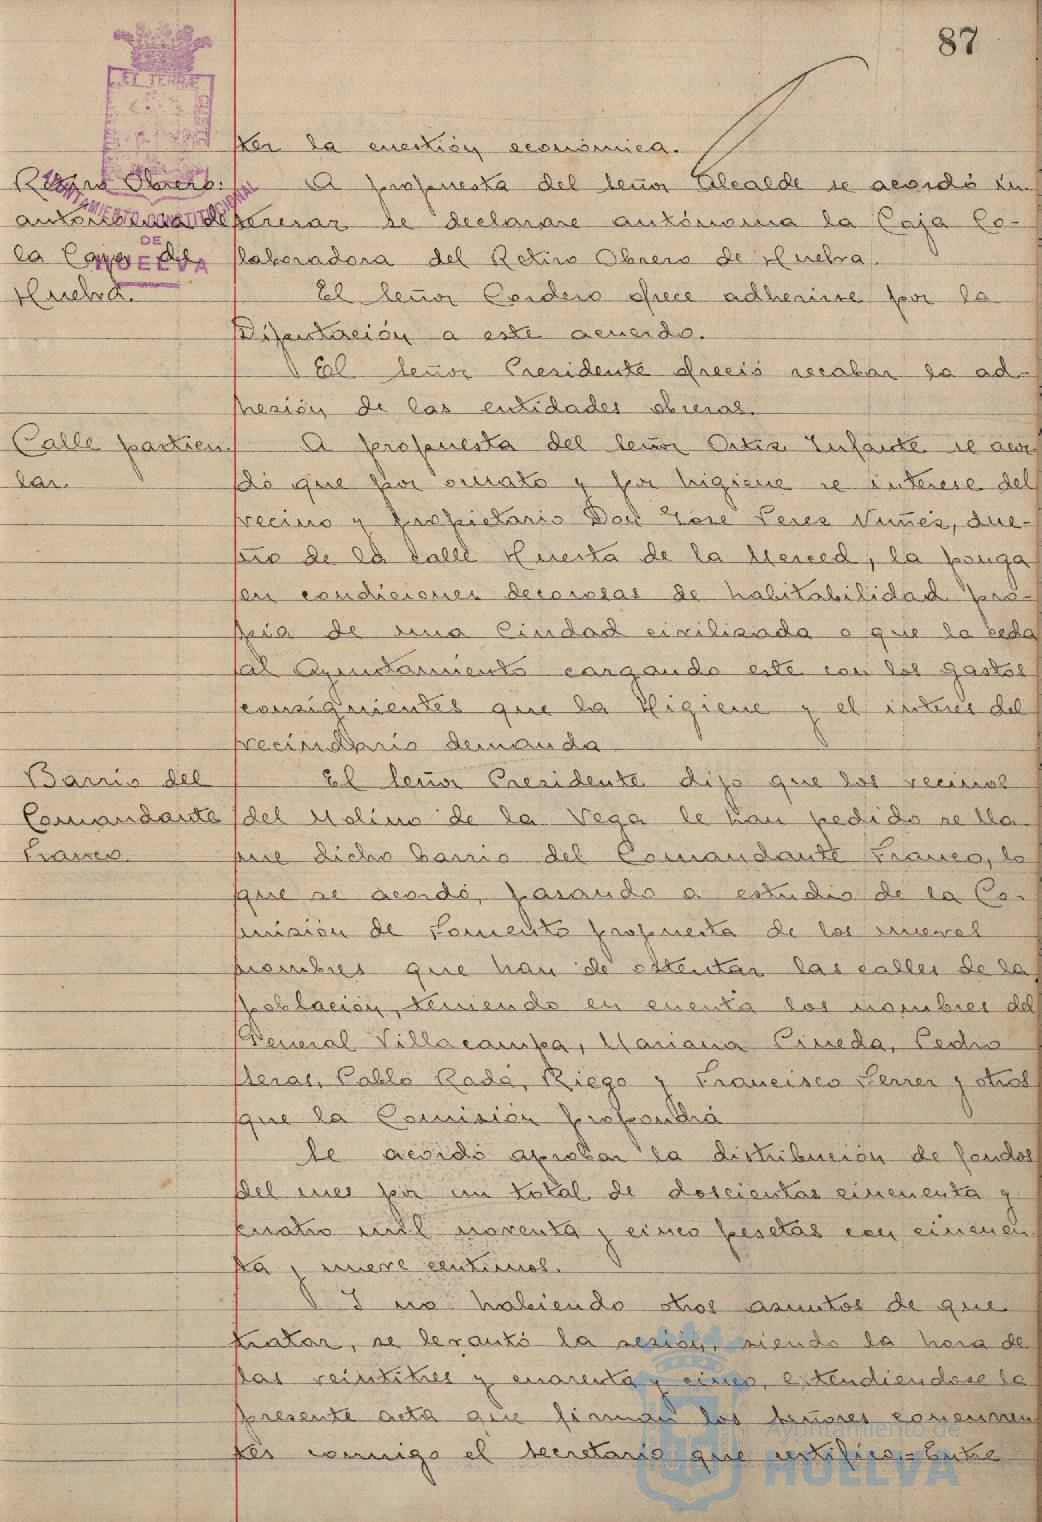 87
ter la cuestión económica.
Retiro Obrero:
autonomía de
la Caja de
Huelva.
A propuesta del Señor Alcalde se acordó in-
teresar se declarase autónoma la Caja Co-
laboradora del Retiro Obrero de Huelva.
El Señor Cordero ofrece adherirse por la
Diputación a este acuerdo.
El Señor Presidente ofreció recabar la ad-
hesión de las entidades obreras.
Calle particu-
lar.
A propuesta del Señor Ortiz Infante se acor-
dó que por ornato y por higiene se interese del
vecino y propietario Don José Perez Nuñez, due-
ño de la calle Huerta de la Merced, la ponga
en condiciones decorosas de habitabilidad pro-
pia de una Ciudad civilizada o que la ceda
al Ayuntamiento cargando este con los gastos
consiguientes que la Higiene y el interés del
vecindario demanda
Barrio del
Comandante
Franco.
El Señor Presidente dijo que los vecinos
del Molino de la Vega le han pedido se lla-
me dicho barrio del Comandante Franco, lo
que se acordó, pasando a estudio de la Co-
misión de Fomento propuesta de los nuevos
nombres que han de ostentar las calles de la
población, teniendo en cuenta los nombres del
General Villacampa, Mariana Pineda, Pedro
Seras, Pablo Rada, Riego y Francisco Ferrer y otros
que la Comisión propondrá
Se acordó aprobar la distribución de fondos
del mes por un total de doscientas cincuenta y
cuatro mil noventa y cinco pesetas con cincuen-
ta y nueve centimos.
Y no habiendo otros asuntos de que
tratar, se levantó la sesión, siendo la hora de
las veintitres y cuarenta y cinco, extendiendose la
presente acta que firman los Señores concurren-
tes conmigo el Secretario que certifico = Entre
ET TERRÆ
AYUNTAMIENTO CONSTITUCIONAL
DE
HUELVA
Ayuntamiento de
HUELVA